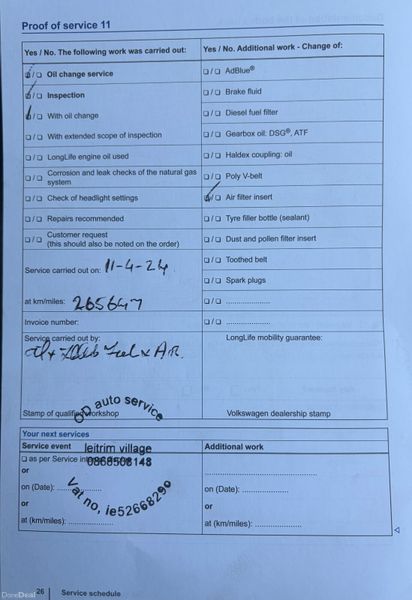 Proof of service 11
Yes / No. The following work was carried out:
Yes / No. Additional work - Change of:
❑ / ❑ Oil change service
❑ / ❑ Inspection
❑ / ❑ With oil change
❑ / ❑ With extended scope of inspection
❑ / ❑ LongLife engine oil used
❑ / ❑ Corrosion and leak checks of the natural gas
system
❑ / ❑ Check of headlight settings
❑ / ❑ Repairs recommended
❑ / ❑ Customer request
(this should also be noted on the order)
Service carried out on: 11-4-24
at km/miles: 265647
Invoice number:
Service carried out by:
Stamp of qualified workshop
❑ / ❑ AdBlue®
❑ / ❑ Brake fluid
❑ / ❑ Diesel fuel filter
❑ / ❑ Gearbox oil: DSG®, ATF
❑ / ❑ Haldex coupling: oil
❑ / ❑ Poly V-belt
❑ / ❑ Air filter insert
❑ / ❑ Tyre filler bottle (sealant)
❑ / ❑ Dust and pollen filter insert
❑ / ❑ Toothed belt
❑ / ❑ Spark plugs
❑ / ❑ ....................
❑ / ❑ ....................
LongLife mobility guarantee:
Volkswagen dealership stamp
OD auto service
leitrim village
0868508148
Vat no, ie52668290
Your next services
Service event
❑ as per Service
or
on (Date): ....................
or
at (km/miles): ....................
Additional work
....................
on (Date): ....................
or
at (km/miles): ....................
26 Service schedule
DoneDeal